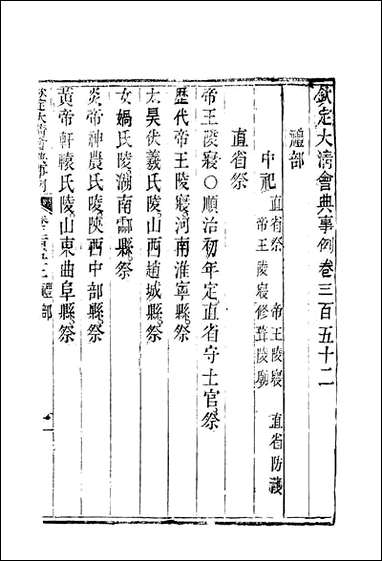 欽定大清會典事例卷三百五十二
禮部
中祀 直省祭 帝王陵寢 直省防護
帝王陵寢 修葺陵廟
直省祭
帝王陵寢○順治初年定直省守土官祭
歷代帝王陵寢河南淮寧縣祭
太昊伏羲氏陵山西趙城縣祭
女媧氏陵湖南酃縣祭
炎帝神農氏陵陝西中部縣祭
黃帝軒轅氏陵山東曲阜縣祭
欽定大清會典事例 卷三百五十二 禮部 一